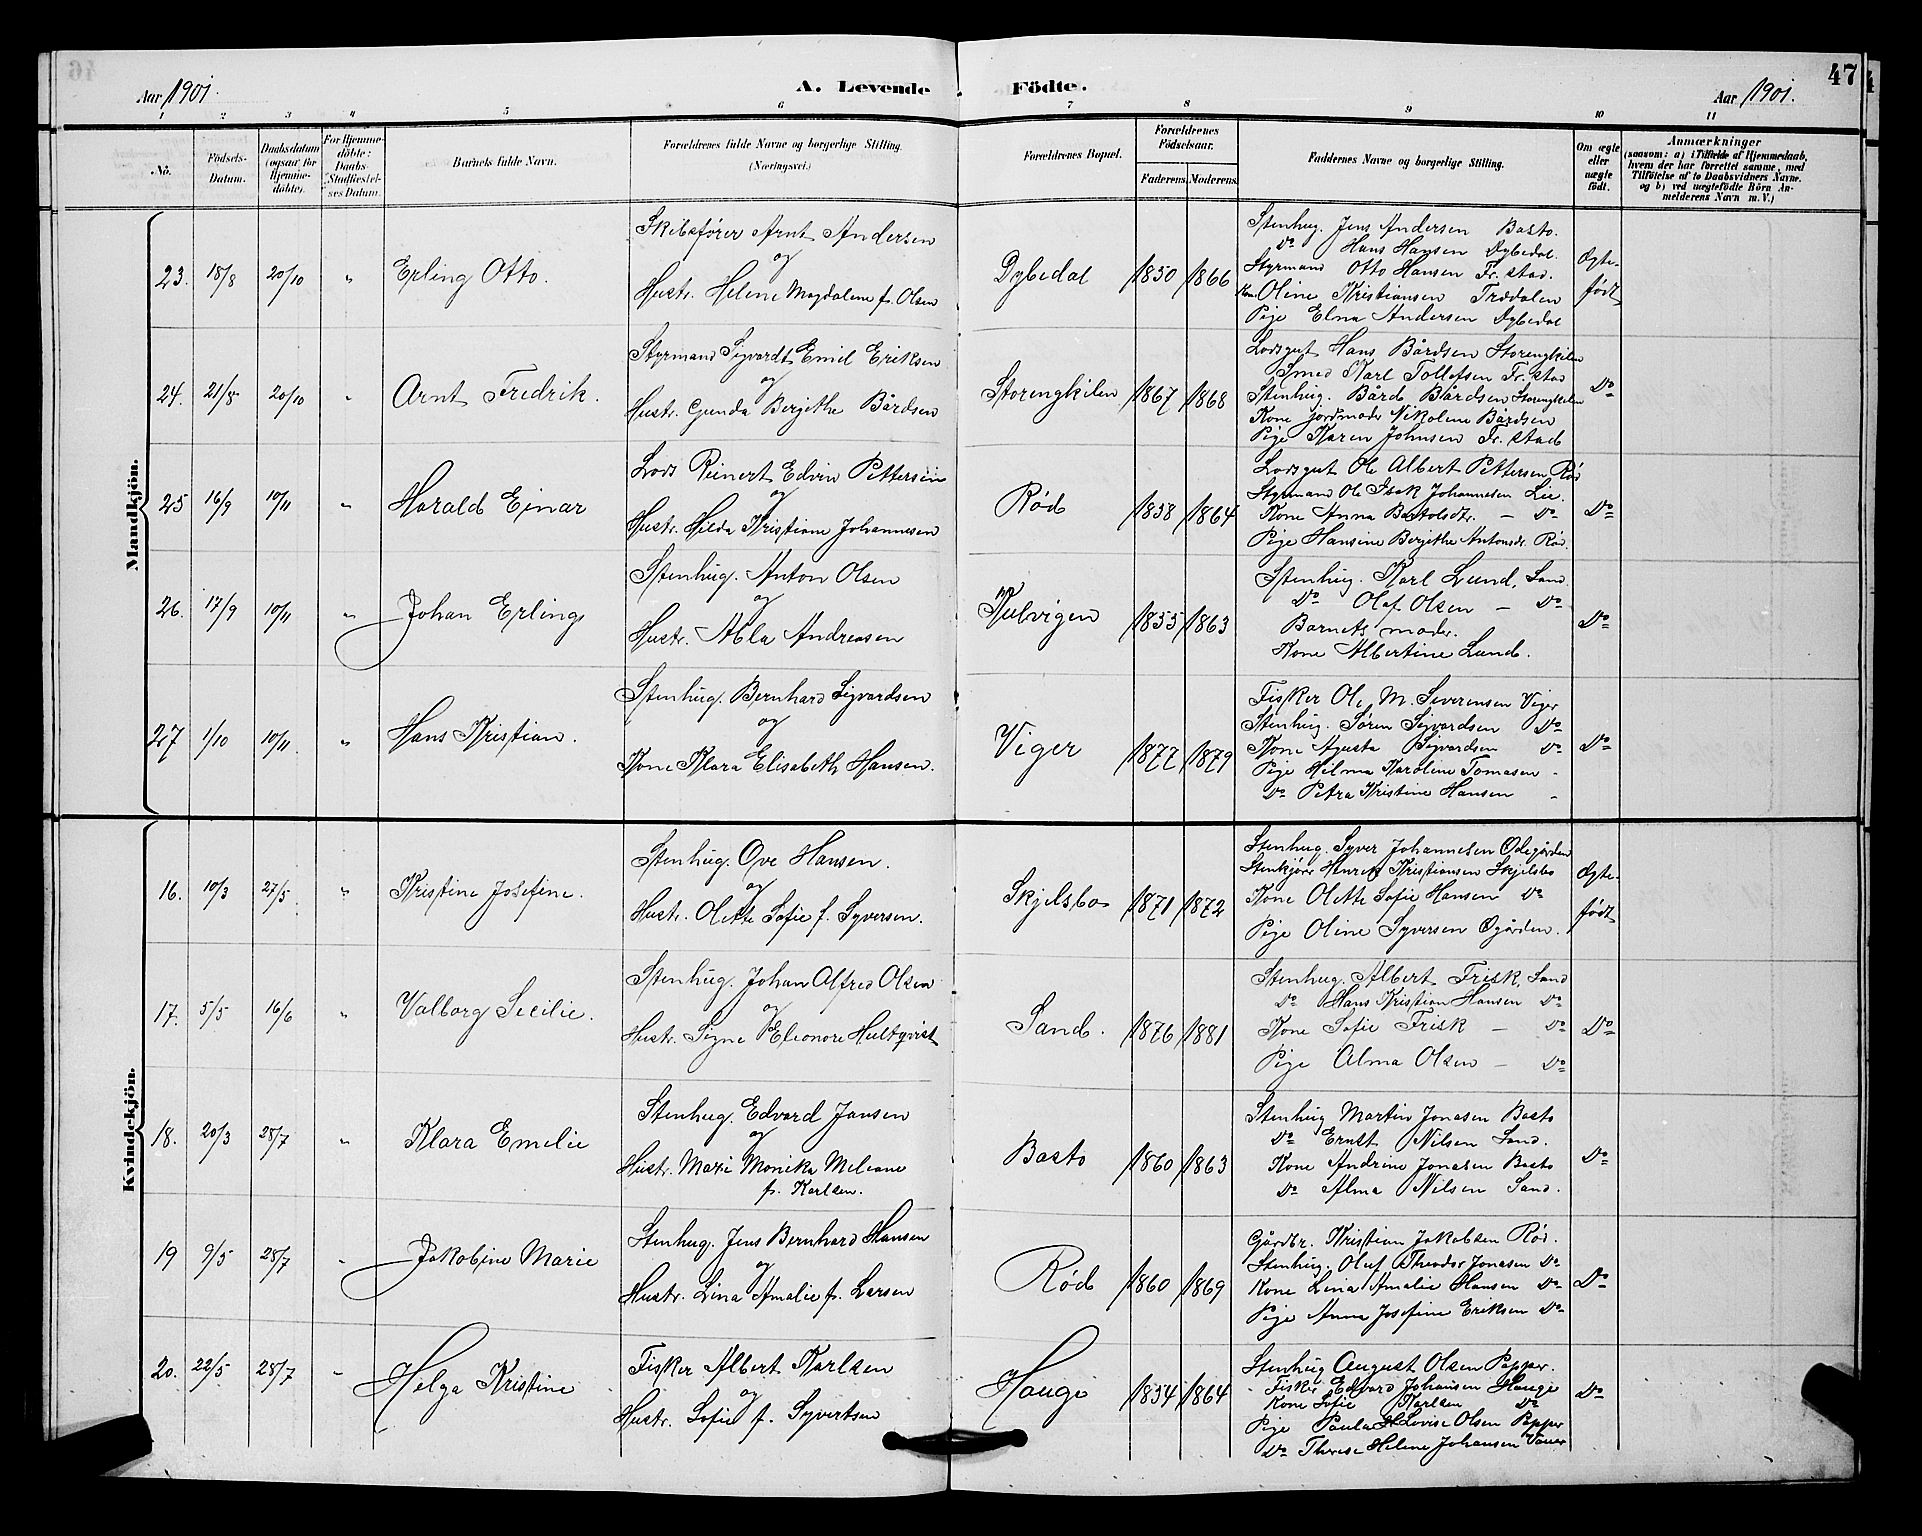 Aar 1901.
A. Levende Födte.
Aar 1901.
47
1 2 3 4 5 6 7 8 9 10 11
No.
Födsels-Datum.
Daabsdatum (ogsaa for Hjemme-döbte).
For Hjemme-döbte: Daabs-Stadfæstel-ses Datum.
Barnets fulde Navn.
Forældrenes fulde Navne og borgerlige Stilling. (Næringsvei.)
Forældrenes Bopæl.
Forældrenes Födselsaar.
Faderens. Moderens.
Faddernes Navne og borgerlige Stilling.
Om ægte eller uægte födt.
Anmærkninger
(saasom: a) i Tilfælde af Hjemmedaab, hvem der har forrettet samme, med Tilföielse af to Daabsvidners Navne. og b) ved uægtefödte Börn Anmelderens Navn m. V.)
Mandkjön.
23. 18/8 20/10 " Erling Otto.
Skibsfører Arnt Andersen
og
Hustr. Helene Magdalene f. Olsen
Dybedal 1850 1866
Stenhug. Jens Andersen Basto.
Do Hans Hansen Dybedal.
Styrmand Otto Hansen Fr. stad.
Kone Oline Kristiansen Trædalen
Pige Elna Andersen Dybedal
Ægte-født
24. 21/8 20/10 " Arnt Fredrik.
Styrmand Sigvardt Emil Eriksen
og
Hustr. Gunda Berjethe Bårdsen
Storengkilen 1867 1868
Lodsgut Hans Bårdsen Storengkilen
Smed Karl Tollefsen Fr. stad
Stenhug. Bård Bårdsen Storengkilen
Kone jordmoder Nikoline Bårdsen
Pige Karen Johnsen Fr. stad
Do
25 16/9 10/11 " Harald Ejnar
Lods Reinert Edvin Pettersen
og
Hustr. Hilda Kristiane Johannesen
Rød 1858 1864
Lodsgut Ole Albert Pettersen Rød
Styrmand Ole Isak Johannesen Lie.
Kone Anna Bartolsdtr. — Do
Pige Hansine Berjethe Antonsdr. Rød.
Do
26. 17/9 10/11 " Johan Erling
Stenhug. Anton Olsen
og
Hustr. Alla Andreasen
Kulvigen 1855 1863
Stenhug. Karl Lund, Sand.
Do Olaf Olsen — Do
Barnets moder.
Kone Albertine Lund.
Do
27 1/10 10/11 " Hans Kristian.
Stenhug. Bernhard Sigvardsen
og
Kone Klara Elisabeth Hansen.
Viger 1877 1879
Fisker Ole M. Siverensen Viger
Stenhug. Søren Sigvardsen Do
Kone Agusta Sigvardsen Do
Pige Hilma Karoline Tomasen -
Do Petra Kristine Hansen -
Do
Kvindekjön.
16. 10/3 27/5 " Kristine Josefine.
Stenhug. Ove Hansen.
og
Hustr. Olette Sofie f. Syversen.
Skjelsbo 1871 1872
Stenhug. Syver Johannesen Ødegården
Stenkjører Henrik Kristiansen Skjelsbo
Kone Olette Sofie Hansen Do
Pige Oline Syversen Øgården.
Ægte-født
17. 5/5 16/6 " Valborg Secilie.
Stenhug. Johan Alfred Olsen
og
Hustr. Signe Eleonore Hultqvist
Sand. 1876 1881
Stenhug. Albert Frisk, Sand
Do Hans Kristian Hansen Do
Kone Sofie Frisk — Do
Pige Alma Olsen — Do
Do
18. 20/3 28/7 " Klara Emelie
Stenhug. Edvard Jansen
og
Hustr. Mari Monika Meleane
f. Karlsen.
Basto 1860 1863
Stenhug Martin Jonasen Basto
Do Ernst Nilsen Sand.
Kone Andrine Jonasen Basto
Do Alma Nilsen Sand.
Do
19 9/5 28/7 " Jakobine Marie
Stenhug. Jens Bernhard Hansen
og
Hustr. Lina Amalie f. Larsen
Rød 1860 1869
Gårdbr. Kristian Jakobsen Rød.
Stenhug. Oluf Theodor Jonasen Do
Kone Lina Amalie Hansen Do
Pige Anna Josefine Eriksen Do
Do
20. 22/5 28/7 " Helga Kristine
Fisker Albert Karlsen
og
Hustr. Sofie f. Syvertsen
Hauge 1854 1864
Stenhug August Olsen Papper.
Fisker Edvard Johansen Hauge
Kone Sofie Karlsen Do
Pige Paula Lovise Olsen Papper
Do Therese Helene Johansen Vauer
Do